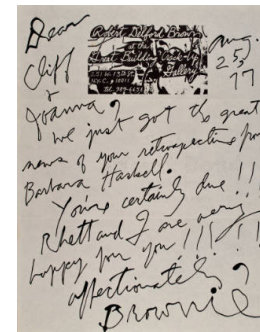 Dear
Cliff
&
Joanna,
Robert Delford Brown
at the
Great Building Crack-Up
Gallery
251 W. 13th St
NYC. 10011
Aug.
25,
77
We just got the great
news of your retrospective from
Barbara Haskell.
You're certainly due!!
Rhett and I are very
happy for you!!!!
affectionately,
Brownie